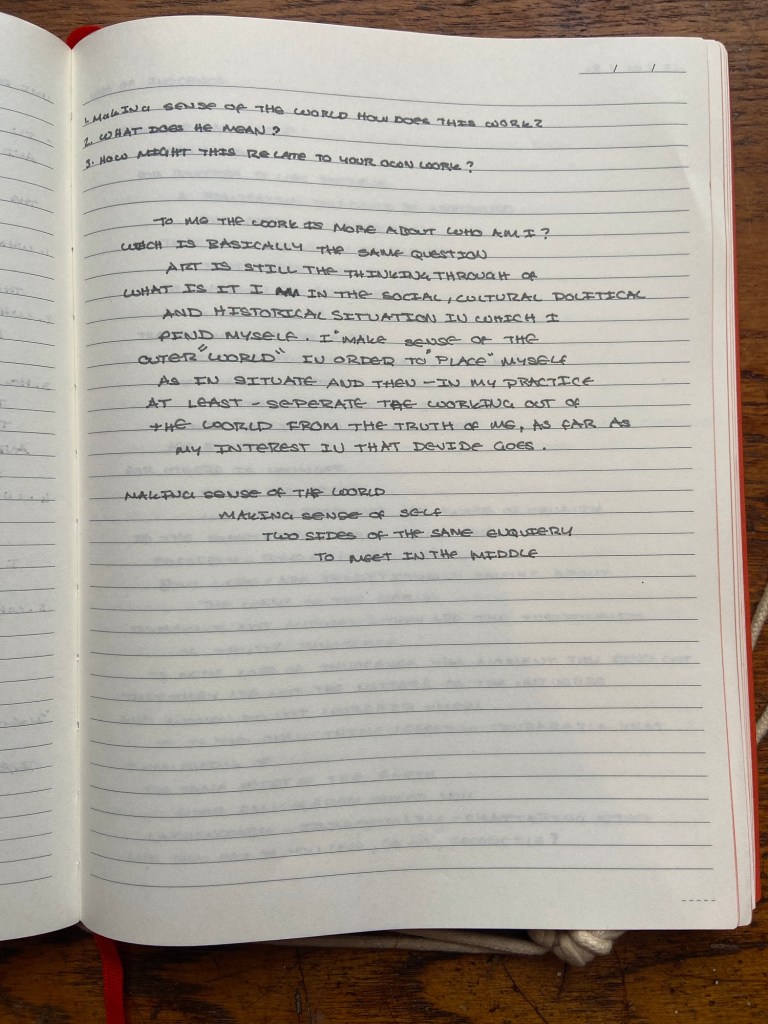 1. MAKING SENSE OF THE WORLD HOW DOES THIS WORK?
2. WHAT DOES HE MEAN?
3. HOW MIGHT THIS RELATE TO YOUR OWN WORK?
TO ME THE WORK IS MORE ABOUT WHO AM I?
WHICH IS BASICALLY THE SAME QUESTION
ART IS STILL THE THINKING THROUGH OF
WHAT IS IT I AM IN THE SOCIAL, CULTURAL POLITICAL
AND HISTORICAL SITUATION IN WHICH I
FIND MYSELF. I "MAKE SENSE OF THE
OUTER "WORLD" IN ORDER TO "PLACE" MYSELF
AS IN SITUATE AND THEN - IN MY PRACTICE
AT LEAST - SEPERATE THE WORKING OUT OF
THE WORLD FROM THE TRUTH OF ME, AS FAR AS
MY INTEREST IN THAT DEVIDE GOES.
MAKING SENSE OF THE WORLD
MAKING SENSE OF SELF
TWO SIDES OF THE SAME ENQUIERY
TO MEET IN THE MIDDLE